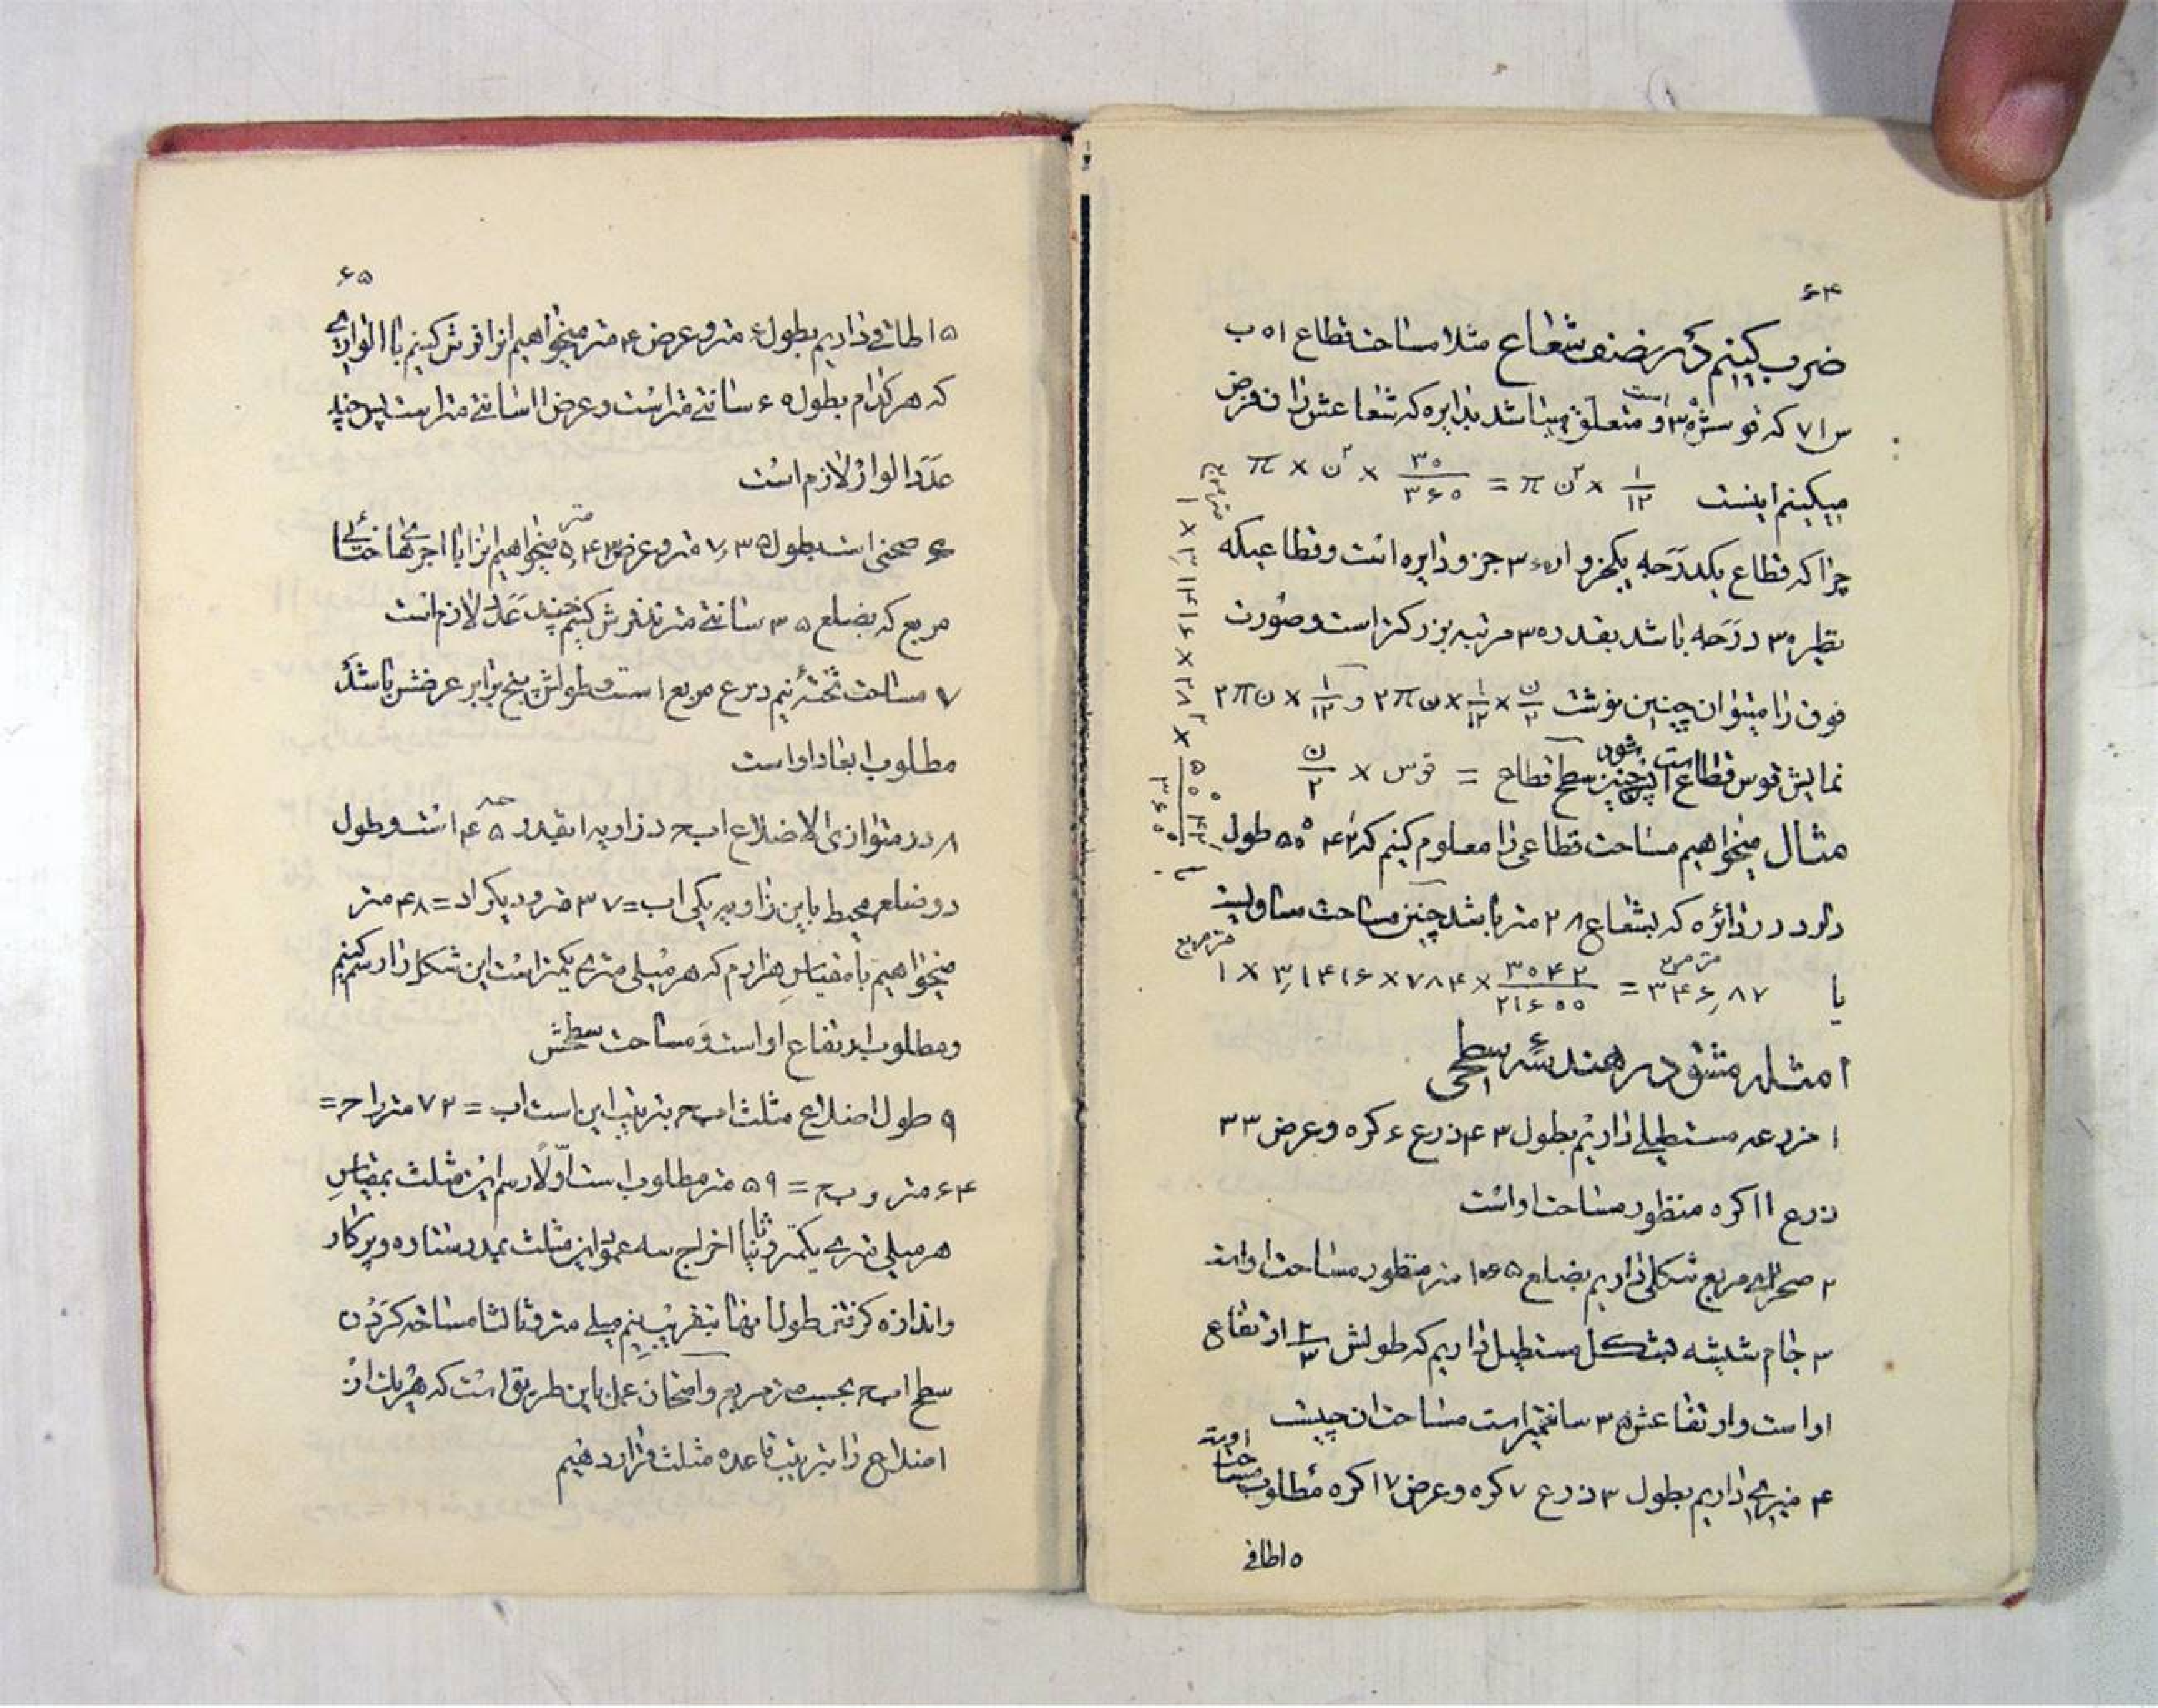 ۶۴
ضرب کنیم در نصف شعاع مثلا مساحت قطاع ا ه ب
س ۷۱ که قوسش ۳۰° است و متعلق میباشد بدایره که شعاعش را ن فرض
میکنیم اینست π × ن^۲ × ۳۰/۳۶۰ = π ن^۲ × ۱/۱۲
چرا که قطاع یکدرجه یکجزو از ۳۶۰ جزو دایره است و قطاعیکه
نظیر ۳۰ درجه باشد بقدر ۳۰ مرتبه بزرکتر است و صورت
فوق را میتوان چنین نوشت ۲π ن × ۱/۱۲ × ن/۲ و ۲π ن × ۱/۱۲
نمایش قوس قطاع است پس چنین شود سطح قطاع = قوس × ن/۲
مثال میخواهیم مساحت قطاعی را معلوم کنیم که ۵۰° ۴۲ طول
دارد در دائره که بشعاع ۲۸ متر باشد چنین مساحت مساویست
متر مربع ۱ × ۳٫۱۴۱۶ × ۲۸^۲ × ۵۰° ۴۲/۳۶۰°
یا متر مربع ۱ × ۳٫۱۴۱۶ × ۷۸۴ × ۳۰۴۲/۲۱۶۰۰ = ۳۴۶٫۸۷ متر مربع
امثله مشق در هندسهٔ سطحی
۱ مزرعه مستطیلی داریم بطول ۴۳ ذرع ۶ کره و عرض ۳۳
ذرع ۱۱ کره منظور مساحت او است
۲ صحرای مربع شکلی داریم بضلع ۱۰۶۵ متر منظور مساحت او است
۳ جام شیشه بشکل مستطیل داریم که طولش ۲/۳ ارتفاع
او است و ارتفاعش ۳۵ سانتیمتر است مساحت ان چیست
۴ میزی داریم بطول ۳ ذرع ۷ کره و عرض ۱۷ کره مطلوب مساحت اوست
۵ اطاقی
۶۵
۵ اطاقی داریم بطول ۶ متر و عرض ۴ متر میخواهیم انرا فرش کنیم با الواری
که هر کدام بطول ۶۵ سانتی متر است و عرض ۱۱ سانتی متر است پس چند
عدد الوار لازم است
۶ صحنی است بطول ۷٫۳۵ متر و عرض ۵٫۴۳ متر میخواهیم انرا با اجرهای ختائی
مربع که بضلع ۳۵ سانتی مترند فرش کنیم چند عدد لازم است
۷ مساحت تختهٔ نیم ذرع مربع است و طولش پنج برابر عرضش باشد
مطلوب ابعاد او است
۸ در متوازی الاضلاع اب حء زاویه ا بقدر ۴۵° است و طول
دو ضلع محیط باین زاویه یکی اب = ۳۷ متر و دیکر اد = ۴۸ متر
میخواهیم بامقیاس هزارم که هر میلی متری یکمتر است این شکل را رسم کنیم
و مطلوب ارتفاع او است و مساحت سطحش
۹ طول اضلاع مثلث ابح بترتیب این است اب = ۷۲ متر اح =
۶۴ متر و بح = ۵۹ متر مطلوب است اوّلاً رسم این مثلث بمقیاس
هر میلی متری یکمتر و ثانیا اخراج سه عمود این مثلث بمدد ستاره و پرکار
و اندازه کرفتن طول انها بتقریب نیم میلی متر و ثالثا مساحه کردن
سطح ابح بحسب متر مربع و امتحان عمل باین طریق است که هر یک از
اضلاع را بترتیب قاعده مثلث قرار دهیم